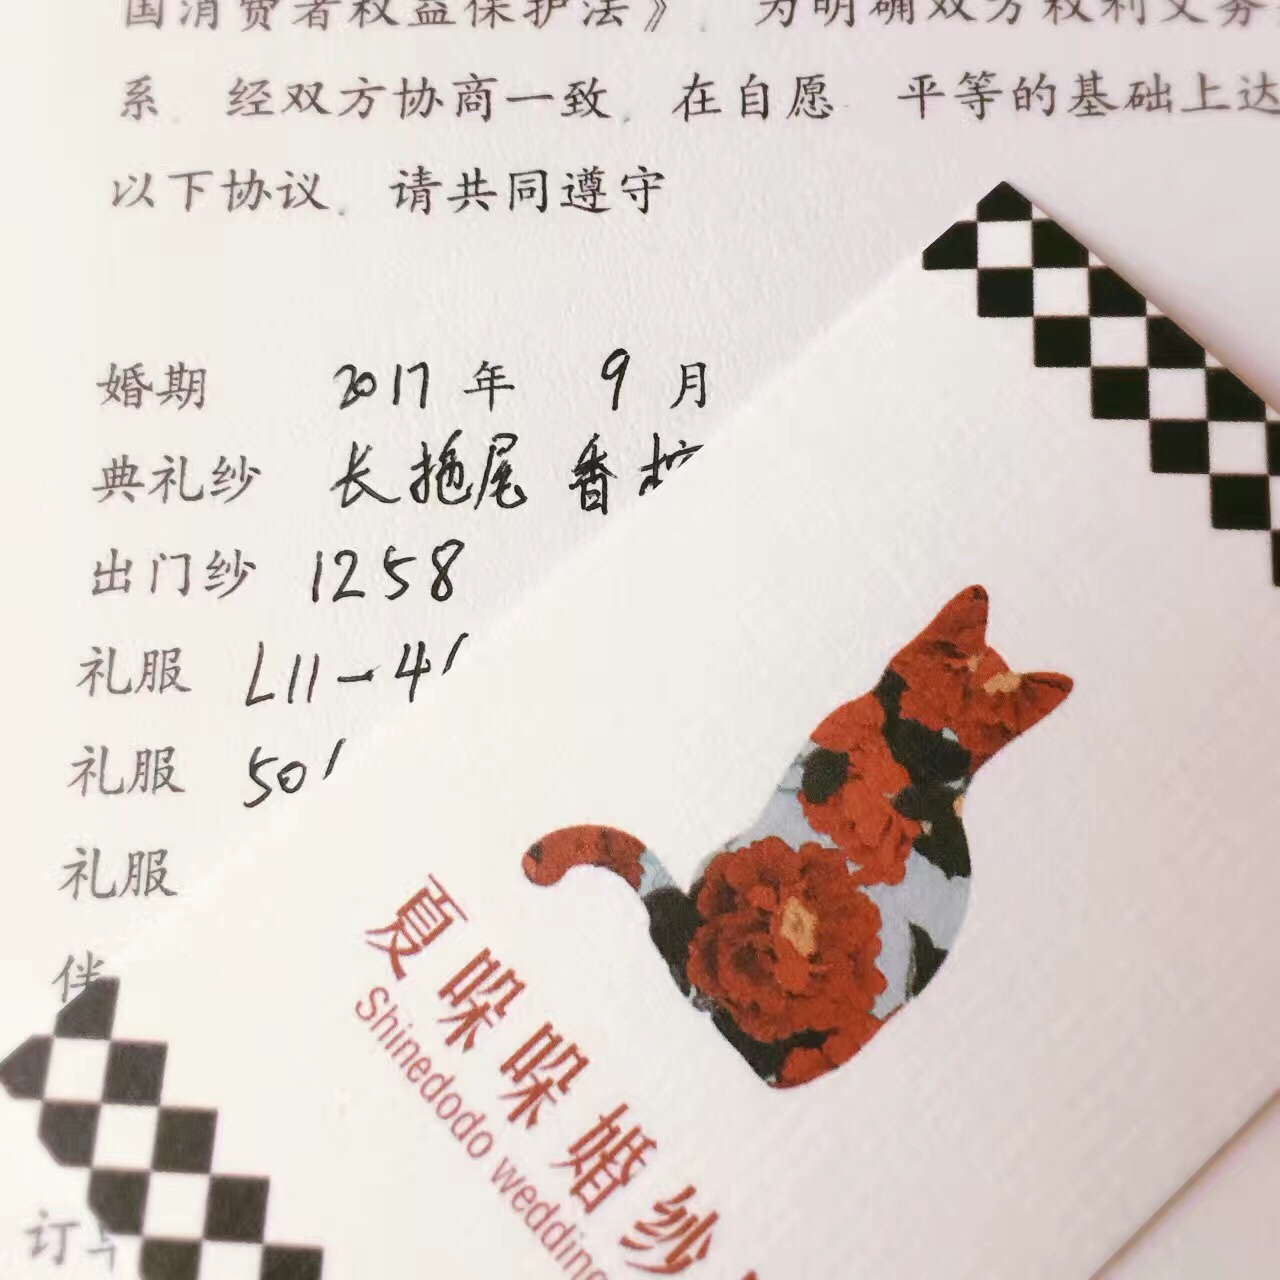 国消费者权益保护法》，为明确双方权利义务
系，经双方协商一致，在自愿 平等的基础上达
以下协议，请共同遵守
婚期 2017 年 9 月
典礼纱 长拖尾 香
出门纱 1258
礼服 L11-4
礼服 50
礼服
伴
订
夏哚哚婚纱
Shinedodo wedding